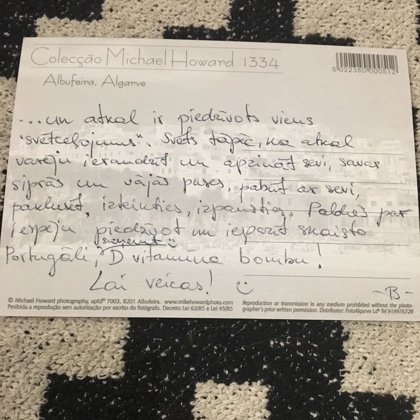 Colecção Michael Howard 1334
Albufeira, Algarve
5 022380 000512
...un atkal ir piedzīvots viens
"svētceļojums". Svēts tāpēc, ka atkal
varēju ieraudzīt un apzināt sevi, savas
stiprās un vājās puses, pabūt ar sevi,
paklusēt, izkliegties, izpausties. Paldies par
iespēju piedzīvot un iepazīt skaisto
Portugāli, D vitamīna bombu!
Lai veicas! -B-
© Michael Howard photography, aptdº 7003, 8201 Albufeira. www.mikehowardphoto.com
Proibida a reprodução sem autorização por escrito do fotógrafo. Decreto Lei 63/85 e Lei 45/85
Reproduction or transmission in any medium prohibited without the photo-
grapher's prior written permission. Distributor: FotoAlgarve Ldª Tel 919976729